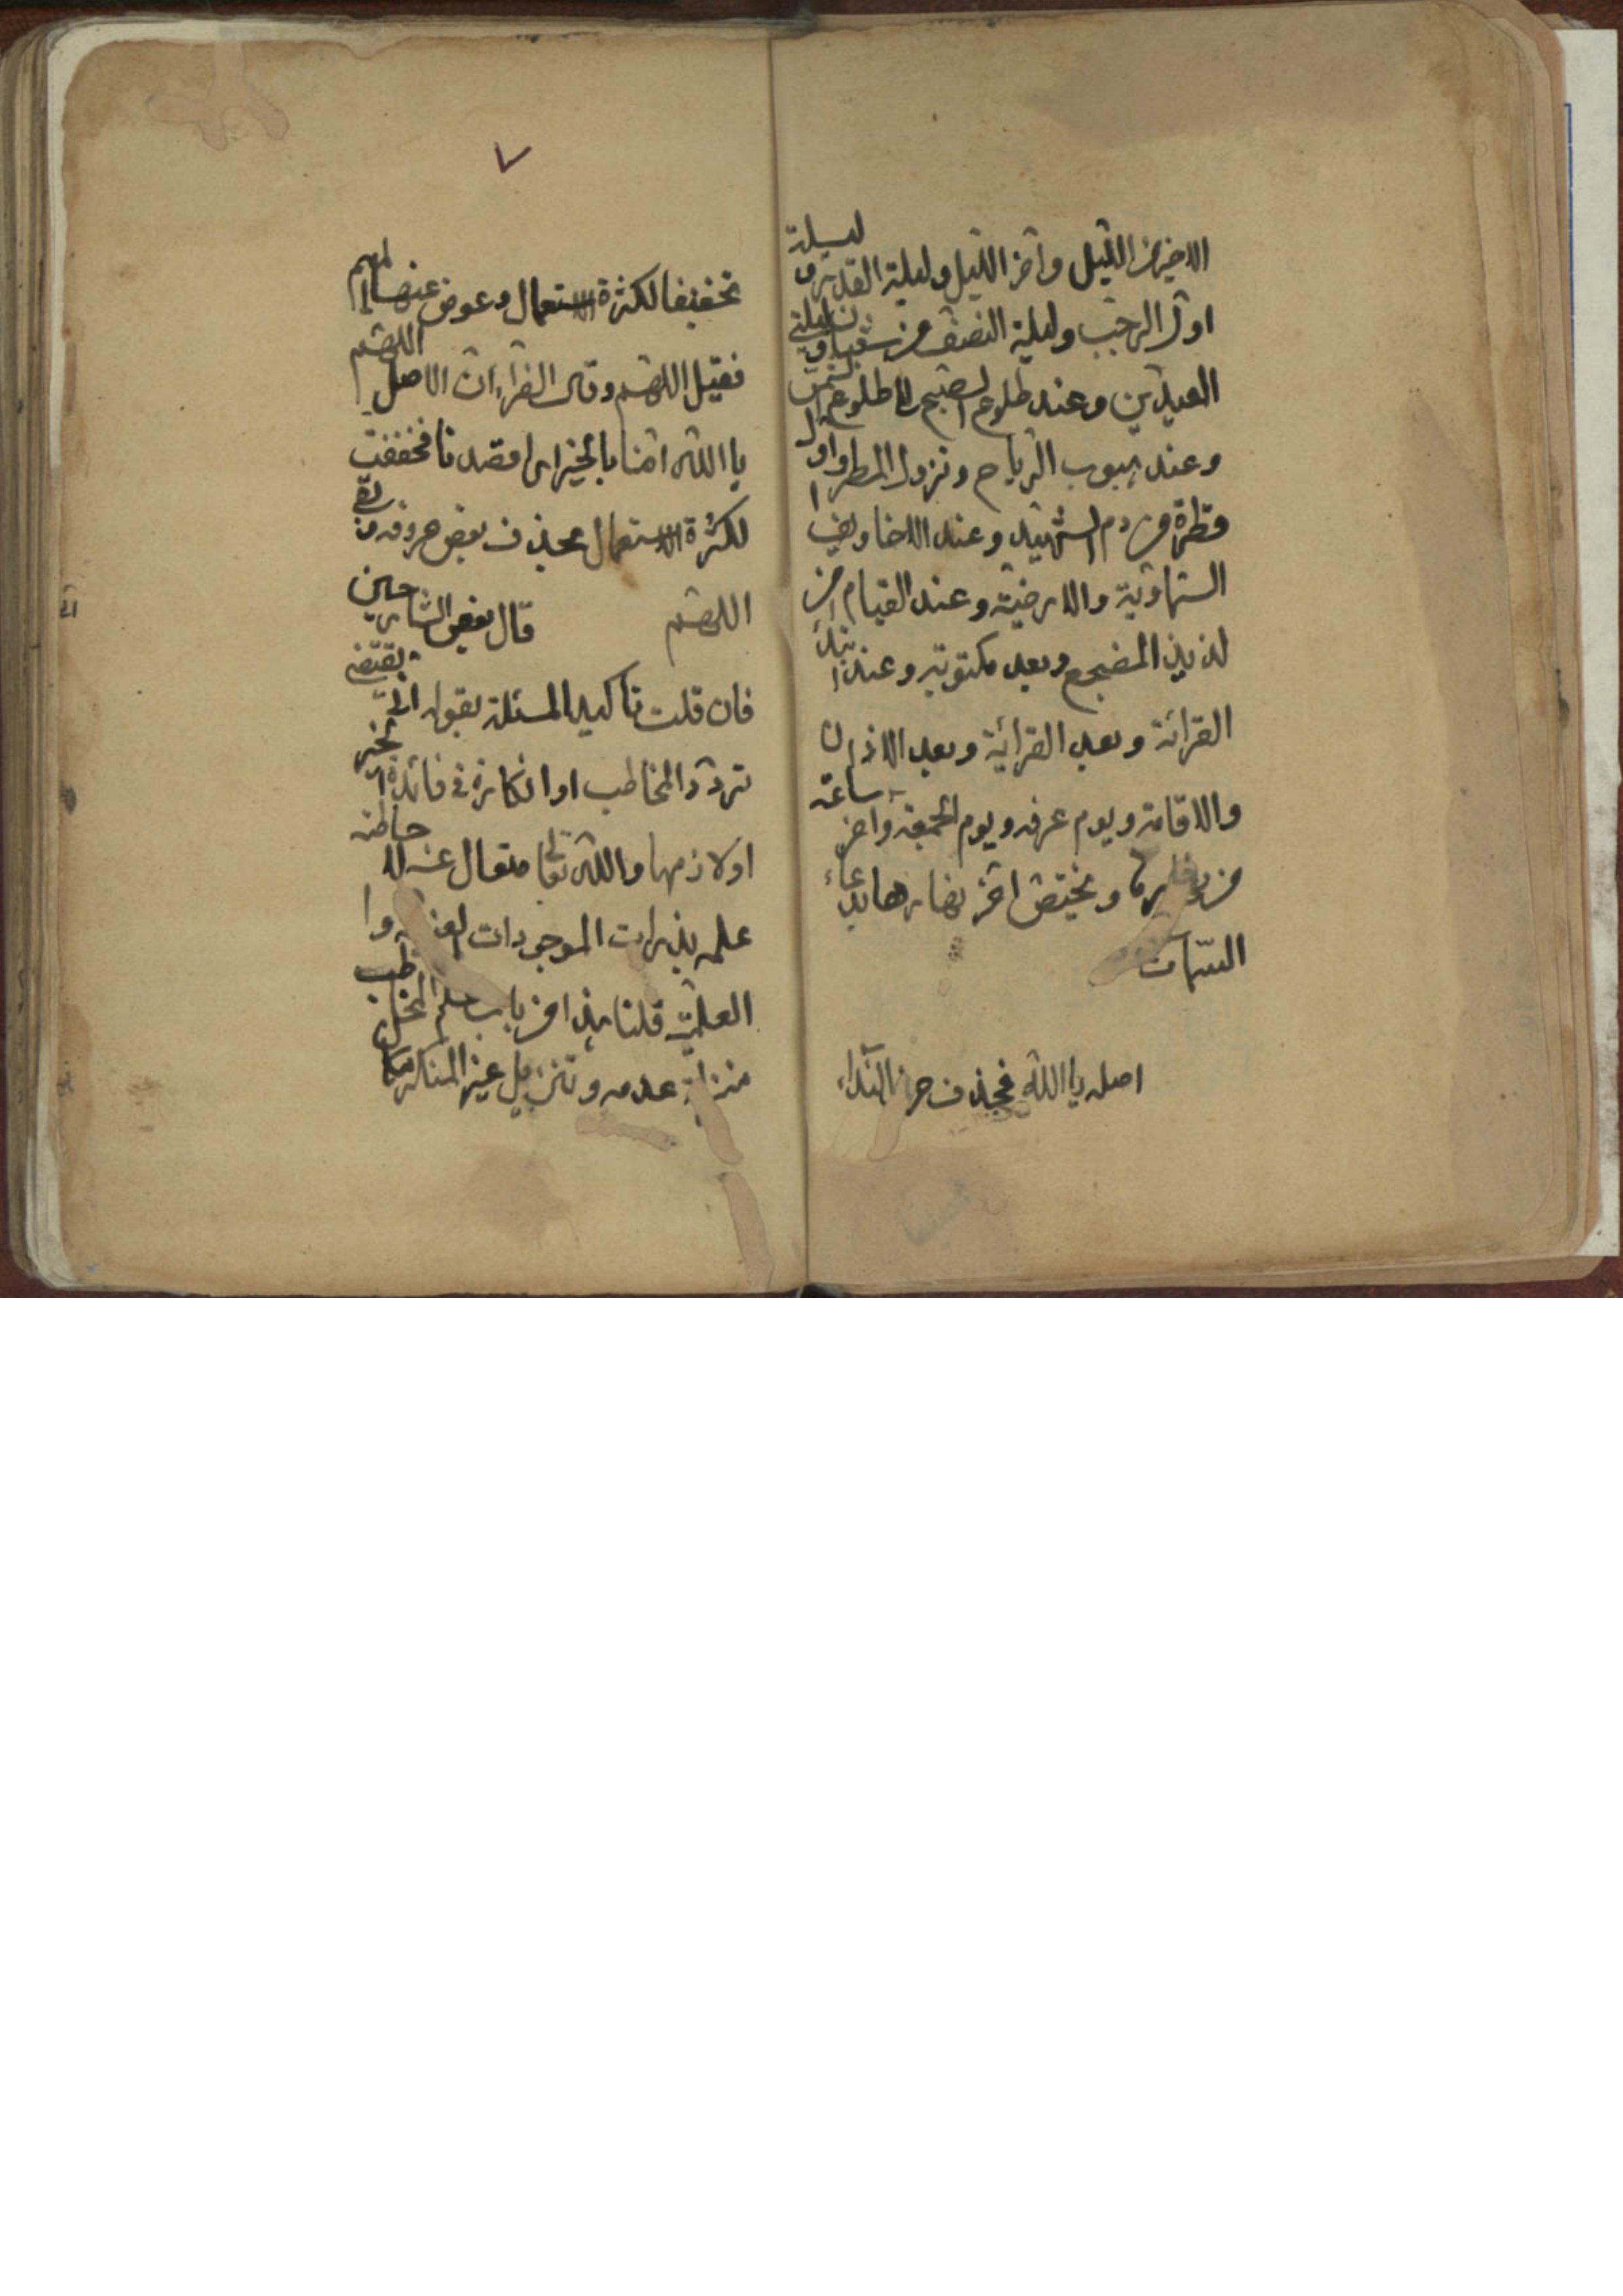 الاخير من الليل واخر الليل وليلة القدر و ليلة
اول الرجب وليلة النصف من شعبان و ليلتي
العيدين وعند طلوع الصبح الى طلوع الشمس
وعند هبوب الرياح ونزول المطر واول
قطرة من دم الشهيد وعند
السماوية والارضية وعند القيام من
لذيذ المضجع وبعد مكتوبة وعند ابتداء
القرائة وبعد القرائة وبعد الاذان
والاقامة ويوم عرفه ويوم الجمعة وآخر ساعة
من ويختص اخر نهارها بدعاء
السمات
اصله يا الله فحذف حرف النداء
٧
تخفيفا لكثرة الاستعمال وعوض عنها الميم
فقيل اللهم وقال الفراء ان الاصل اللهم
يا الله امنا بالخير اى اقصدنا فخففت
لكثرة الاستعمال بحذف بعض حروفه
اللهم قال بعض الشارحين
فان قلت تاكيد المسئلة بقوله انى يقتضى
تردد المخاطب او انكاره فى فائدة الخبر
او لازمها والله تعا متعال عن
علمه بذرات الموجودات
العلمية قلنا هذا من باب علم المخاطب
منزلة عدمه وتنزيل غير المنكر